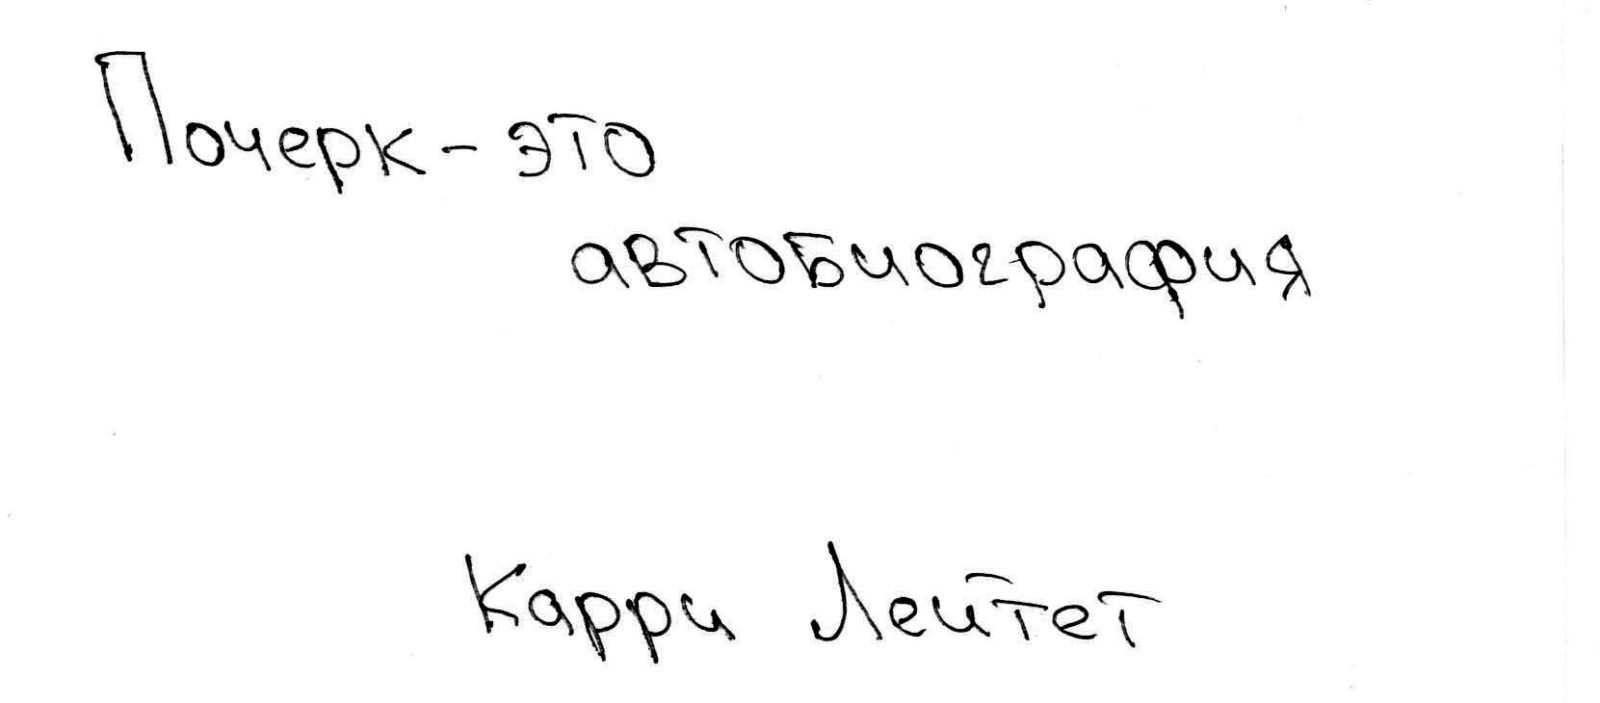 Почерк - это
автобиография
Карри Лейтет